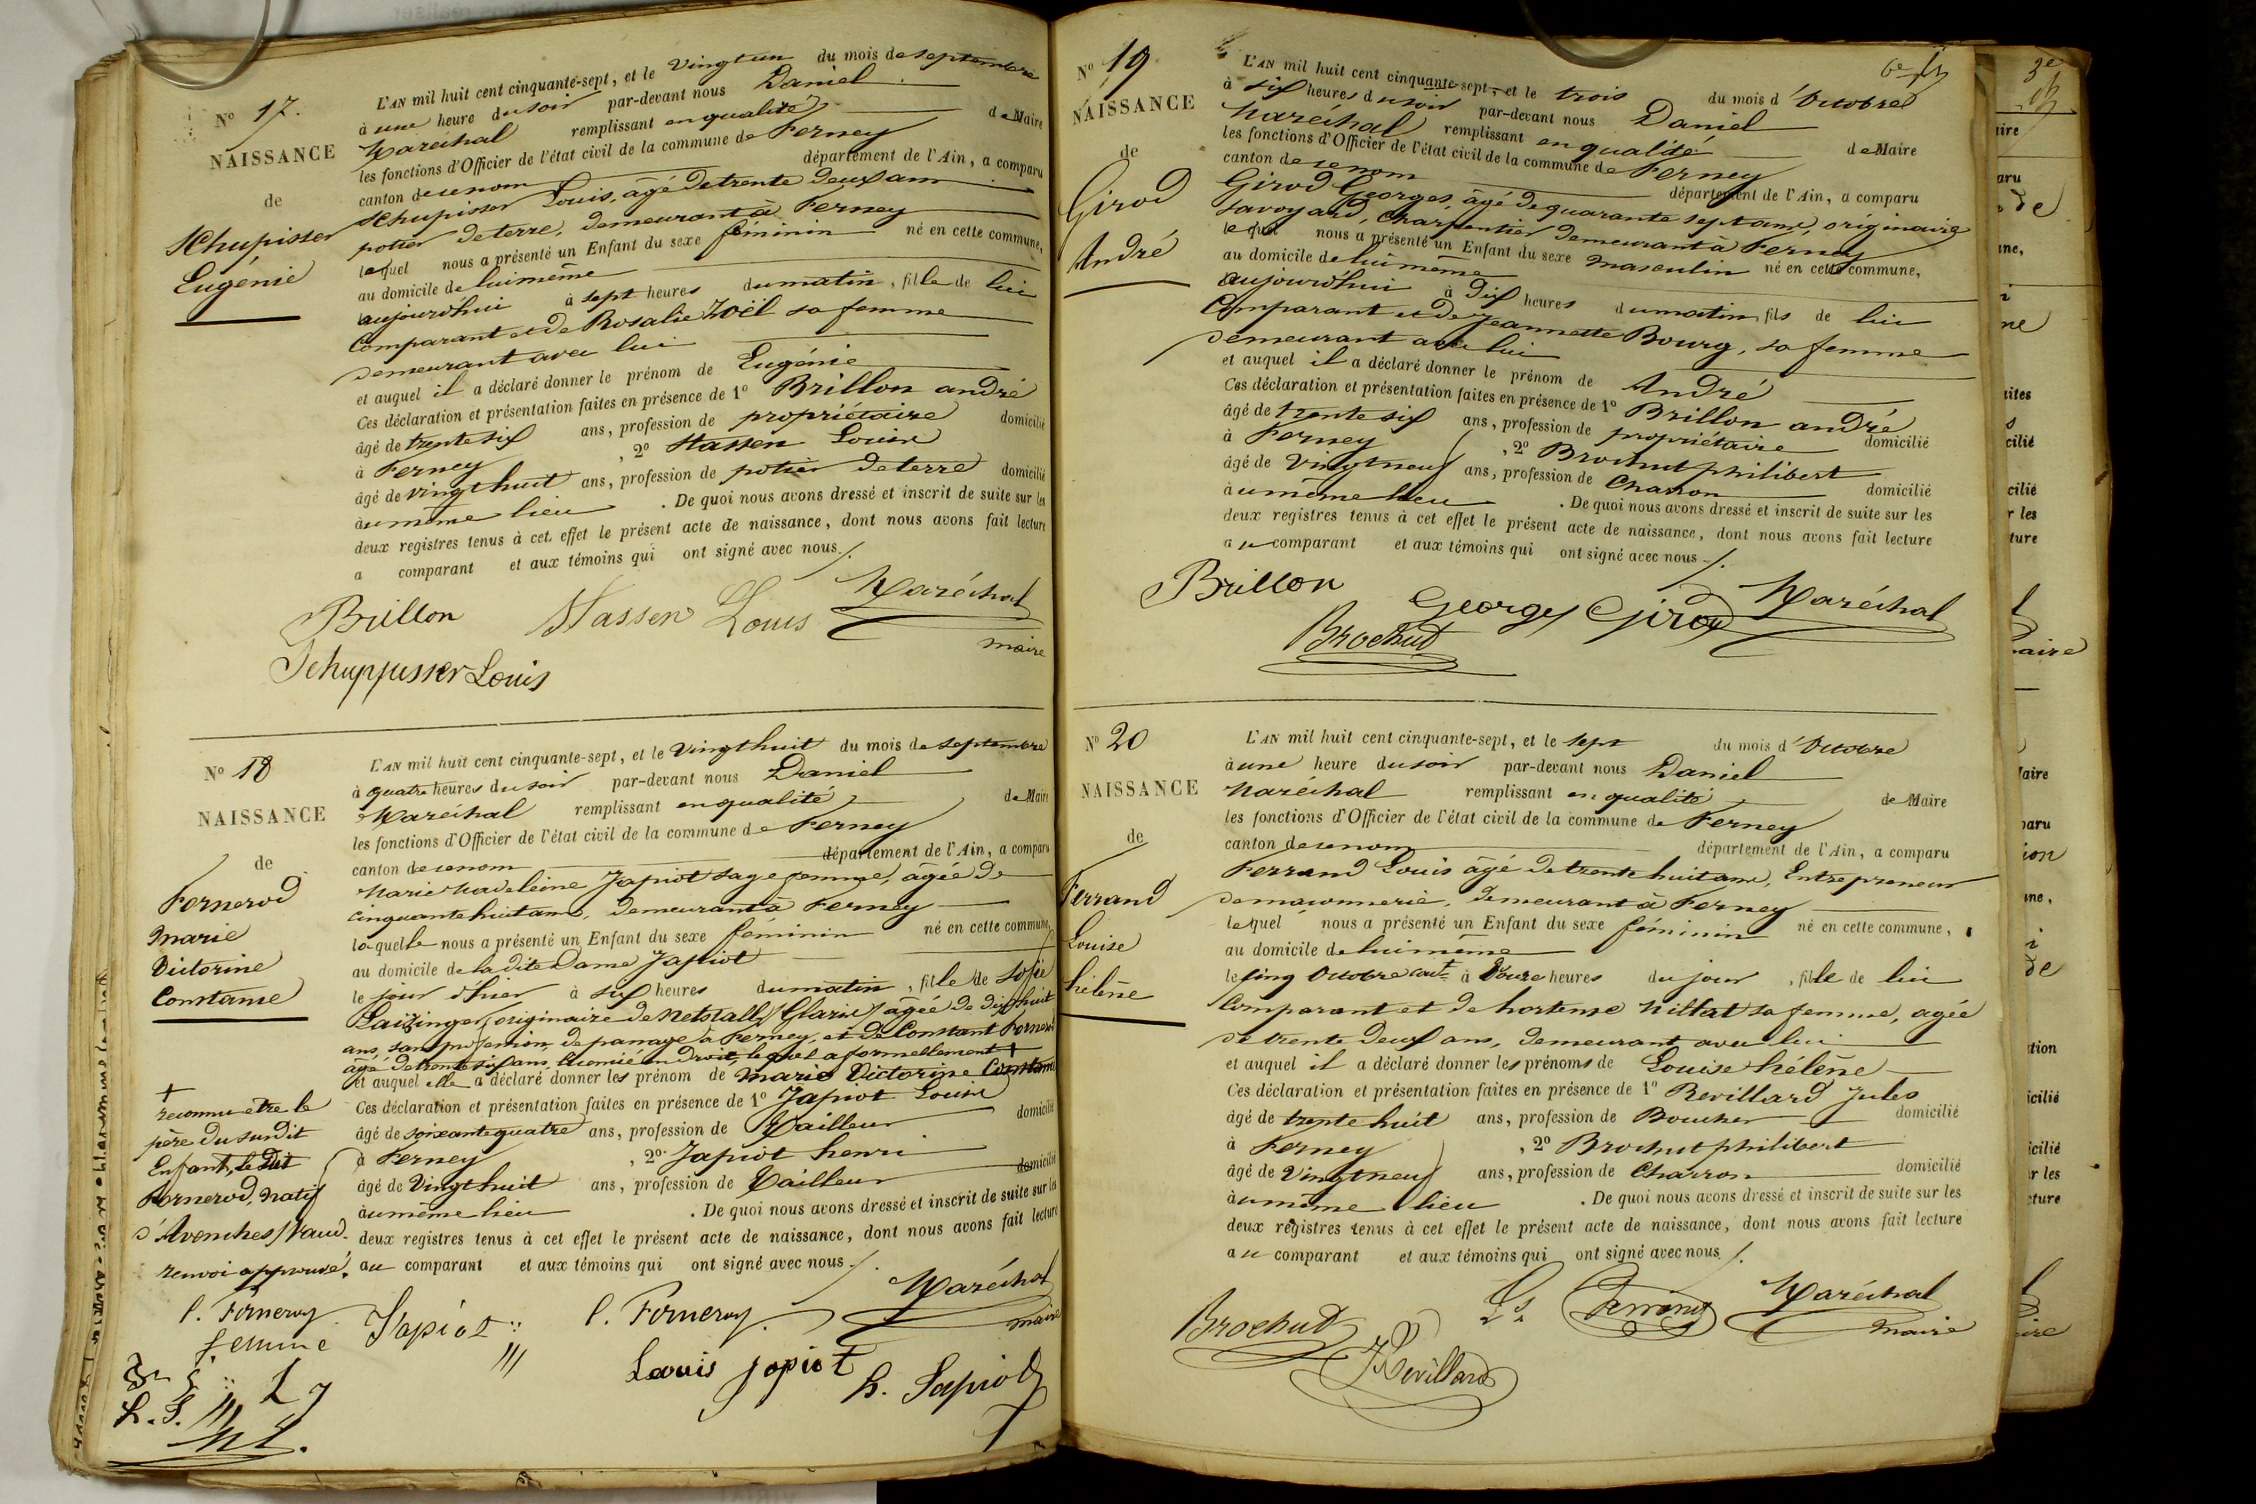 No 17.
NAISSANCE
de
Schupisser
Eugénie
L'AN mil huit cent cinquante-sept, et le Vingt un du mois de septembre
à une heure du soir par-devant nous Daniel
Maréchal remplissant en qualité de Maire
les fonctions d'Officier de l'état civil de la commune de Ferney
canton de ce nom département de l'Ain, a comparu
Schupisser Louis, âgé de trente deux ans
potier de terre, demeurant à Ferney
lequel nous a présenté un Enfant du sexe féminin né en cette commune,
au domicile de lui même
aujourd'hui à sept heures du matin, fille de lui
Comparant et de Rosalie Zoël sa femme
demeurant avec lui
et auquel il a déclaré donner le prénom de Eugénie
Ces déclaration et présentation faites en présence de 1o Brillon andré
âgé de trente six ans, profession de propriétaire domicilié
à Ferney, 2o Stassen Louis
âgé de vingt huit ans, profession de potier de terre domicilié
à u même lieu. De quoi nous avons dressé et inscrit de suite sur les
deux registres tenus à cet effet le présent acte de naissance, dont nous avons fait lecture
a comparant et aux témoins qui ont signé avec nous./.
Brillon Stassen Louis Maréchal
maire
Schuppisser Louis
No 18
NAISSANCE
de
Fornerod
Marie
Victorine
Constance
L'AN mil huit cent cinquante-sept, et le Vingt huit du mois de septembre
à quatre heures du soir par-devant nous Daniel
Maréchal remplissant en qualité de Maire
les fonctions d'Officier de l'état civil de la commune de Ferney
canton de ce nom département de l'Ain, a comparu
Marie Madeleine Japiot sage femme, âgée de
cinquante huit ans, demeurant à Ferney
laquelle nous a présenté un Enfant du sexe féminin né en cette commune,
au domicile de la dite Dame Japiot
le jour d'hier à six heures du matin, fille de Sofie
originaire de Netstall (Glaris) âgée de dix huit
ans, sans profession, de passage à Ferney, et de Constant Fornerod
âgé de trente six ans, licencié en droit, lequel a formellement +
et auquel elle a déclaré donner les prénom de Marie Victorine Constance
Ces déclaration et présentation faites en présence de 1o Japiot Louis
âgé de soixante quatre ans, profession de Tailleur domicilié
à Ferney, 2o Japiot henri
âgé de Vingt huit ans, profession de Tailleur domicilié
à u même lieu. De quoi nous avons dressé et inscrit de suite sur les
deux registres tenus à cet effet le présent acte de naissance, dont nous avons fait lecture
au comparant et aux témoins qui ont signé avec nous./.
+
reconnu être le
père du susdit
Enfant, le dit
Fornerod, natif
d'Avenches (Vaud.
renvoi approuvé.
C. Fornerod femme Japiot C. Fornerod Maréchal
maire
Louis Japiot h. Japiot
No 19
NAISSANCE
de
Girod
André
L'AN mil huit cent cinquante-sept, et le trois du mois d'Octobre
à six heures du soir par-devant nous Daniel
Maréchal remplissant en qualité de Maire
les fonctions d'Officier de l'état civil de la commune de Ferney
canton de ce nom département de l'Ain, a comparu
Girod Georges, âgé de quarante sept ans, originaire
savoyard, Charpentier demeurant à Ferney
lequel nous a présenté un Enfant du sexe masculin né en cette commune,
au domicile de lui même
aujourd'hui à dix heures du matin, fils de lui
Comparant et de Jeannette Bourg, sa femme
demeurant avec lui
et auquel il a déclaré donner le prénom de André
Ces déclaration et présentation faites en présence de 1o Brillon andré
âgé de trente six ans, profession de propriétaire domicilié
à Ferney, 2o Brochut philibert
âgé de Vingt neuf ans, profession de Charron domicilié
à u même lieu. De quoi nous avons dressé et inscrit de suite sur les
deux registres tenus à cet effet le présent acte de naissance, dont nous avons fait lecture
au comparant et aux témoins qui ont signé avec nous./.
Brillon Georges Girod Maréchal
Brochut
No 20
NAISSANCE
de
Ferrand
Louise
hélène
L'AN mil huit cent cinquante-sept, et le sept du mois d'Octobre
à une heure du soir par-devant nous Daniel
Maréchal remplissant en qualité de Maire
les fonctions d'Officier de l'état civil de la commune de Ferney
canton de ce nom département de l'Ain, a comparu
Ferrand Louis âgé de trente huit ans, Entrepreneur
de maçonnerie, demeurant à Ferney
lequel nous a présenté un Enfant du sexe féminin né en cette commune,
au domicile de lui même
le cinq Octobre cout à douze heures du jour, fille de lui
Comparant et de hortense Nillat sa femme, agée
de trente deux ans, demeurant avec lui
et auquel il a déclaré donner les prénoms de Louise hélène
Ces déclaration et présentation faites en présence de 1o Revillard Jules
âgé de trente huit ans, profession de Boucher domicilié
à Ferney, 2o Brochut philibert
âgé de Vingt neuf ans, profession de Charron domicilié
à u même lieu. De quoi nous avons dressé et inscrit de suite sur les
deux registres tenus à cet effet le présent acte de naissance, dont nous avons fait lecture
au comparant et aux témoins qui ont signé avec nous./.
Brochut Ls Ferrand Maréchal
maire
J Revillard